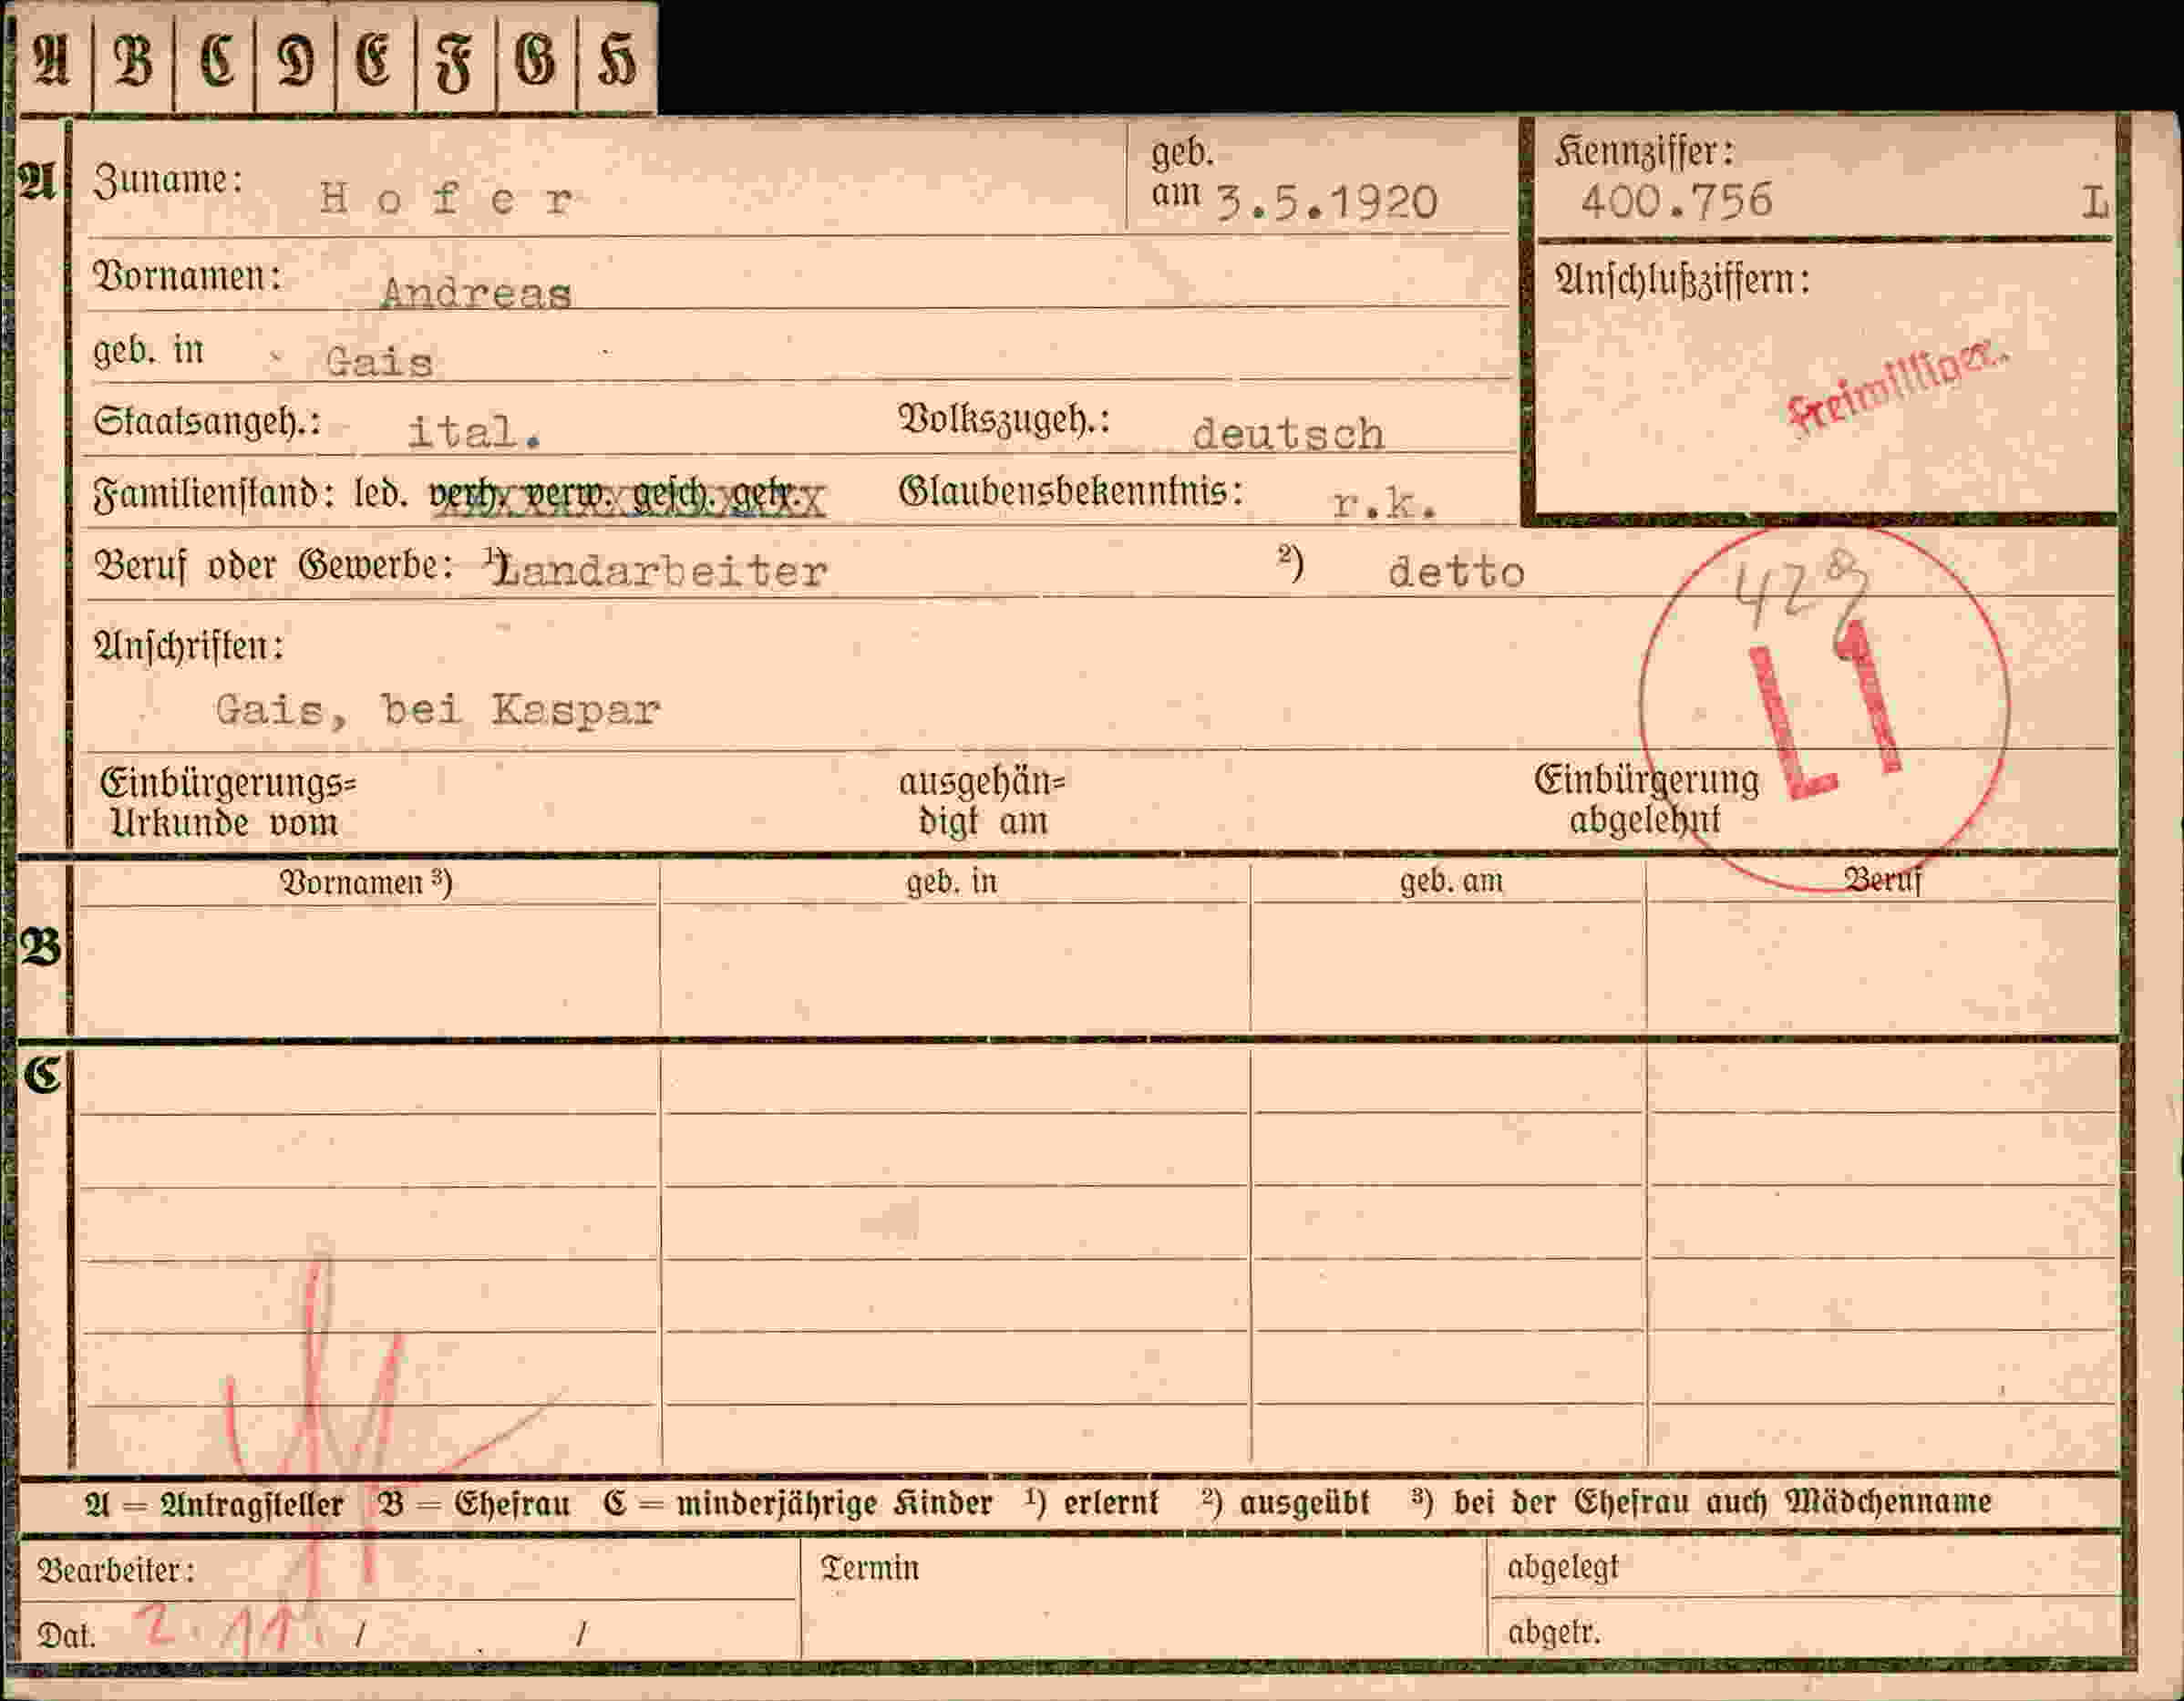 A B C D E F G H
A Zuname: Hofer geb. am 3.5.1920 Kennziffer: 400.756 L
Vornamen: Andreas Anschlußziffern:
geb. in Gais freiwilliger.
Staatsangeh.: ital. Volkszugeh.: deutsch
Familienstand: led. verh. verw. gesch. getr. Glaubensbekenntnis: r.k.
Beruf oder Gewerbe: 1) Landarbeiter 2) detto
428
Anschriften:
L1
Gais, bei Kaspar
Einbürgerungs= ausgehän= Einbürgerung
Urkunde vom digt am abgelehnt
Vornamen 3) geb. in geb. am Beruf
B
C
A = Antragsteller B = Ehefrau C = minderjährige Kinder 1) erlernt 2) ausgeübt 3) bei der Ehefrau auch Mädchenname
Bearbeiter: Termin abgelegt
Dat. 2.11. / . / abgetr.